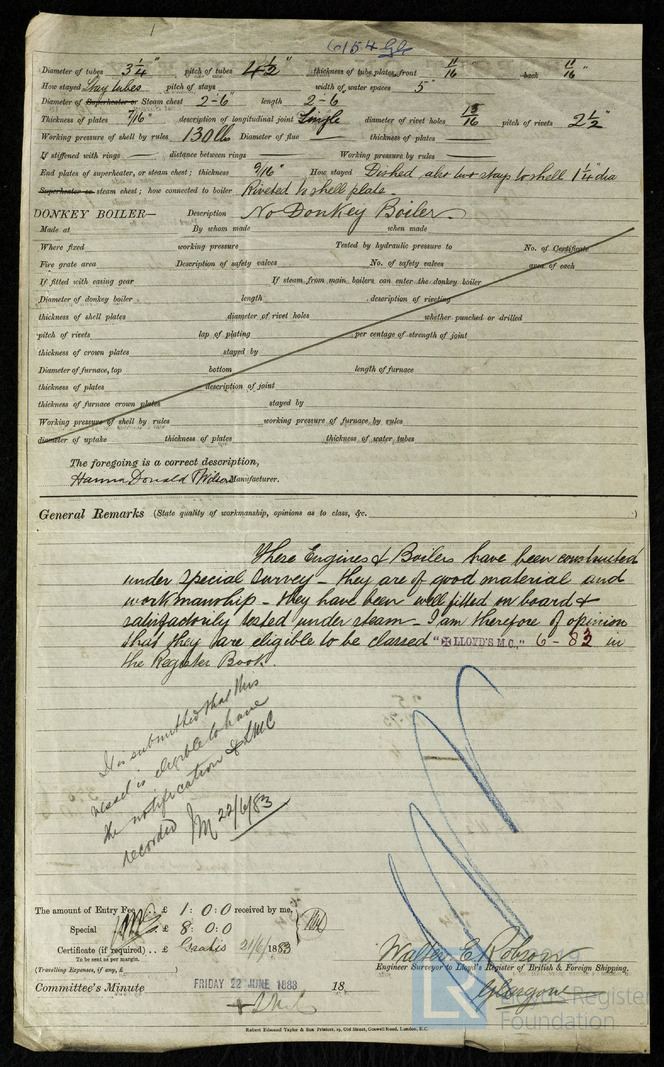 6154 Gls
Diameter of tubes 3 1/4" pitch of tubes 4 1/2" thickness of tube plates, front 11/16" back 11/16"
How stayed Stay tubes pitch of stays width of water spaces 5"
Diameter of Superheater or Steam chest 2-6" length 2-6
Thickness of plates 7/16" description of longitudinal joint Single diameter of rivet holes 13/16 pitch of rivets 2 1/2"
Working pressure of shell by rules 130 lbs Diameter of flue thickness of plates
If stiffened with rings distance between rings Working pressure by rules
End plates of superheater, or steam chest; thickness 9/16" How stayed Dished also two stays to shell 1 1/4 dia
Superheater or steam chest; how connected to boiler Riveted to shell plate.
DONKEY BOILER— Description No Donkey Boiler
Made at By whom made when made
Where fixed working pressure Tested by hydraulic pressure to No. of Certificate
Fire grate area Description of safety valves No. of safety valves area of each
If fitted with easing gear If steam from main boilers can enter the donkey boiler
Diameter of donkey boiler length description of riveting
thickness of shell plates diameter of rivet holes whether punched or drilled
pitch of rivets lap of plating per centage of strength of joint
thickness of crown plates stayed by
Diameter of furnace, top bottom length of furnace
thickness of plates description of joint
thickness of furnace crown plates stayed by
Working pressure of shell by rules working pressure of furnace by rules
diameter of uptake thickness of plates thickness of water tubes
The foregoing is a correct description,
Hanna Donald & Wilson Manufacturer.
General Remarks (State quality of workmanship, opinions as to class, &c. )
These Engines & Boilers have been constructed
under Special Survey - they are of good material and
workmanship - they have been well fitted on board &
satisfactorily tested under steam - I am therefore of opinion
that they are eligible to be classed "✠ LLOYD'S M.C." 6-83 in
the Register Book.
It is submitted that this
vessel is eligible to have
the notification ✠ LMC
recorded 22/6/83
The amount of Entry Fee .. £ 1 : 0 : 0 received by me,
Special .. £ 8 : 0 : 0
Certificate (if required) .. £ Gratis 21/6/1883
To be sent as per margin.
(Travelling Expenses, if any, £ )
Walter E Robson
Engineer Surveyor to Lloyd's Register of British & Foreign Shipping.
Glasgow
Committee's Minute FRIDAY 22 JUNE 1883 18
+ LMC
LR
Lloyd's Register
Foundation
Robert Edmund Taylor & Son Printers, 19, Old Street, Goswell Road, London, E.C.